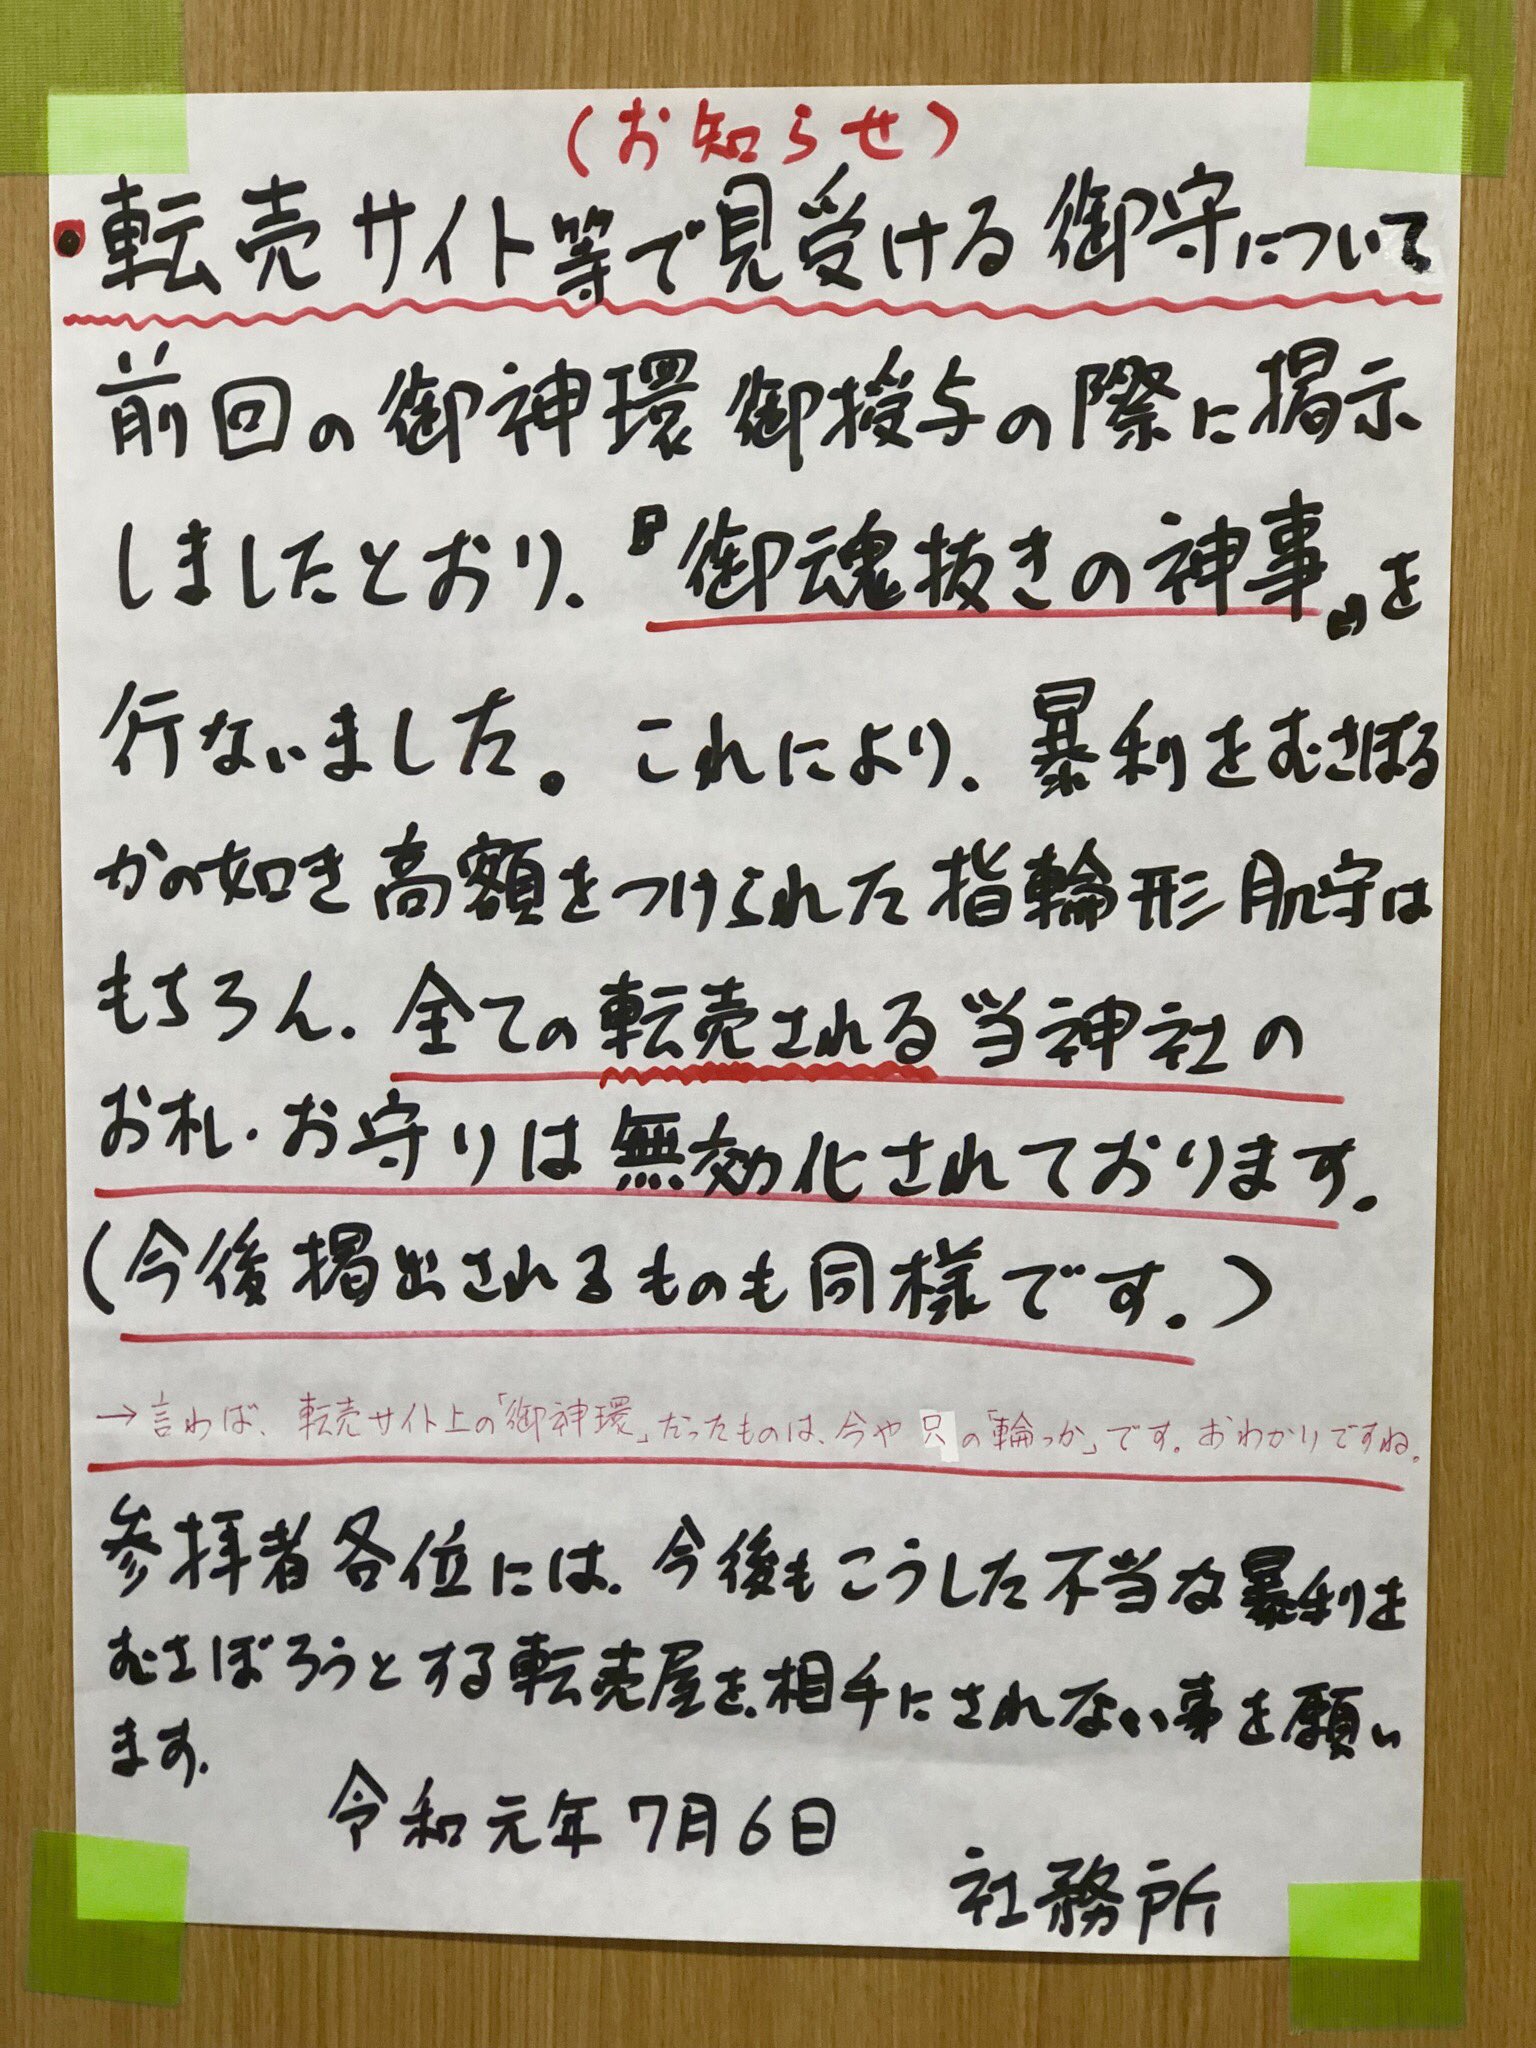 (お知らせ)
・転売サイト等で見受ける御守について
前回の御神環御授与の際に掲示
しましたとおり、『御魂抜きの神事』を
行ないました。これにより、暴利をむさぼる
かの如き高額をつけられた指輪形肌守は
もちろん、全ての転売される当神社の
お札・お守りは無効化されております。
(今後掲出されるものも同様です。)
→言わば、転売サイト上の「御神環」だったものは、今や只の「輪っか」です。おわかりですね。
参拝者各位には、今後もこうした不当な暴利を
むさぼろうとする転売屋を、相手にされない事を願い
ます。
令和元年7月6日
社務所